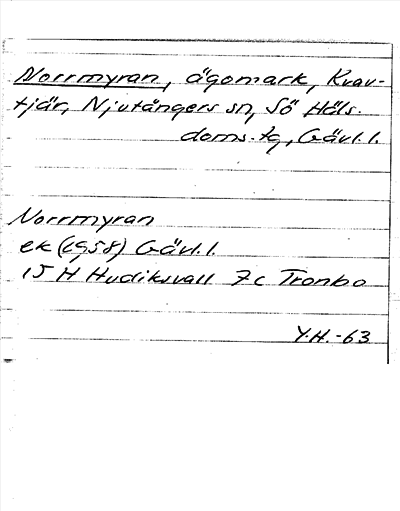 Norrmyran, ägomark, Kvav-
tjär, Njutångers sn, Sö Häls.
doms. tg, Gävl. l.
Norrmyran
ek (1958) Gävl. l.
15 H Hudiksvall 7c Tronbo
Y.H. -63